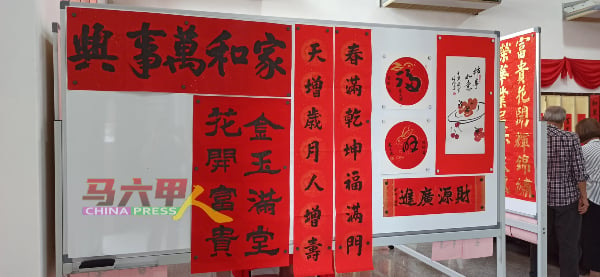 家和萬事興
天增歲月人增壽
春滿乾坤福滿門
金玉滿堂
花開富貴
福
旺
柿柿如意
財源廣進
富貴花開輝錦繡
马六甲人
CHINA PRESS